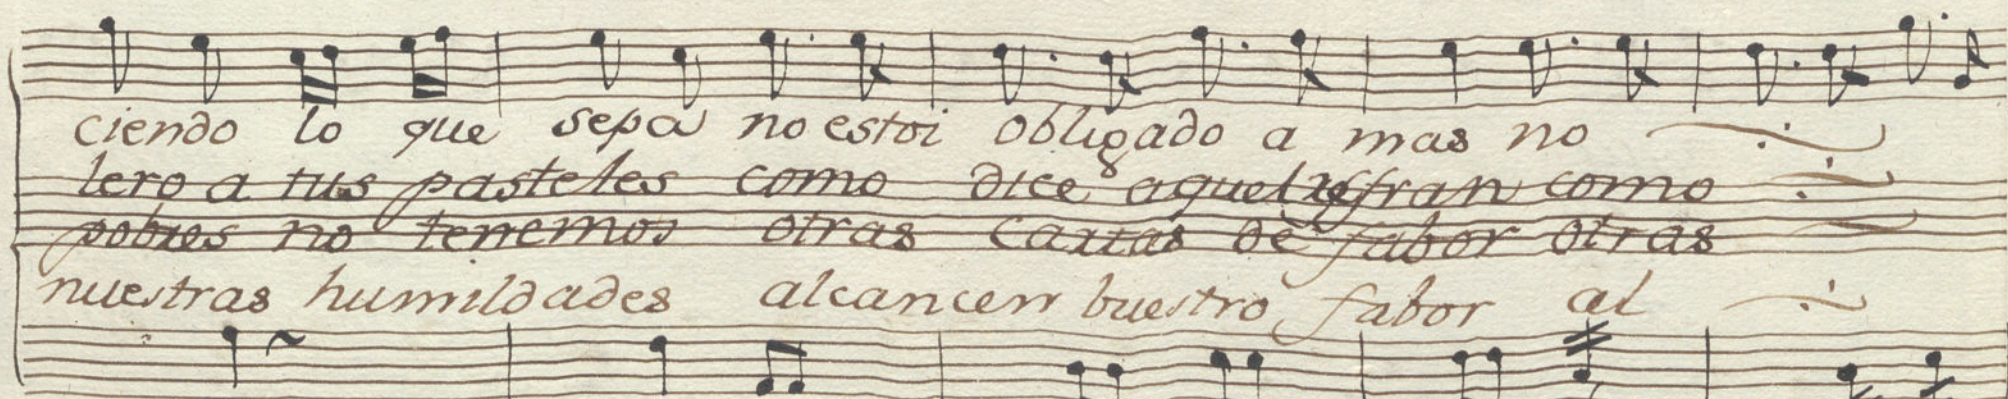 ciendo lo que sepa no estoi obligado a mas no
lero a tus pasteles como dice aquel refran como
pobres no tenemos otras cartas de fabor otras
nuestras humildades alcancen buestro fabor al